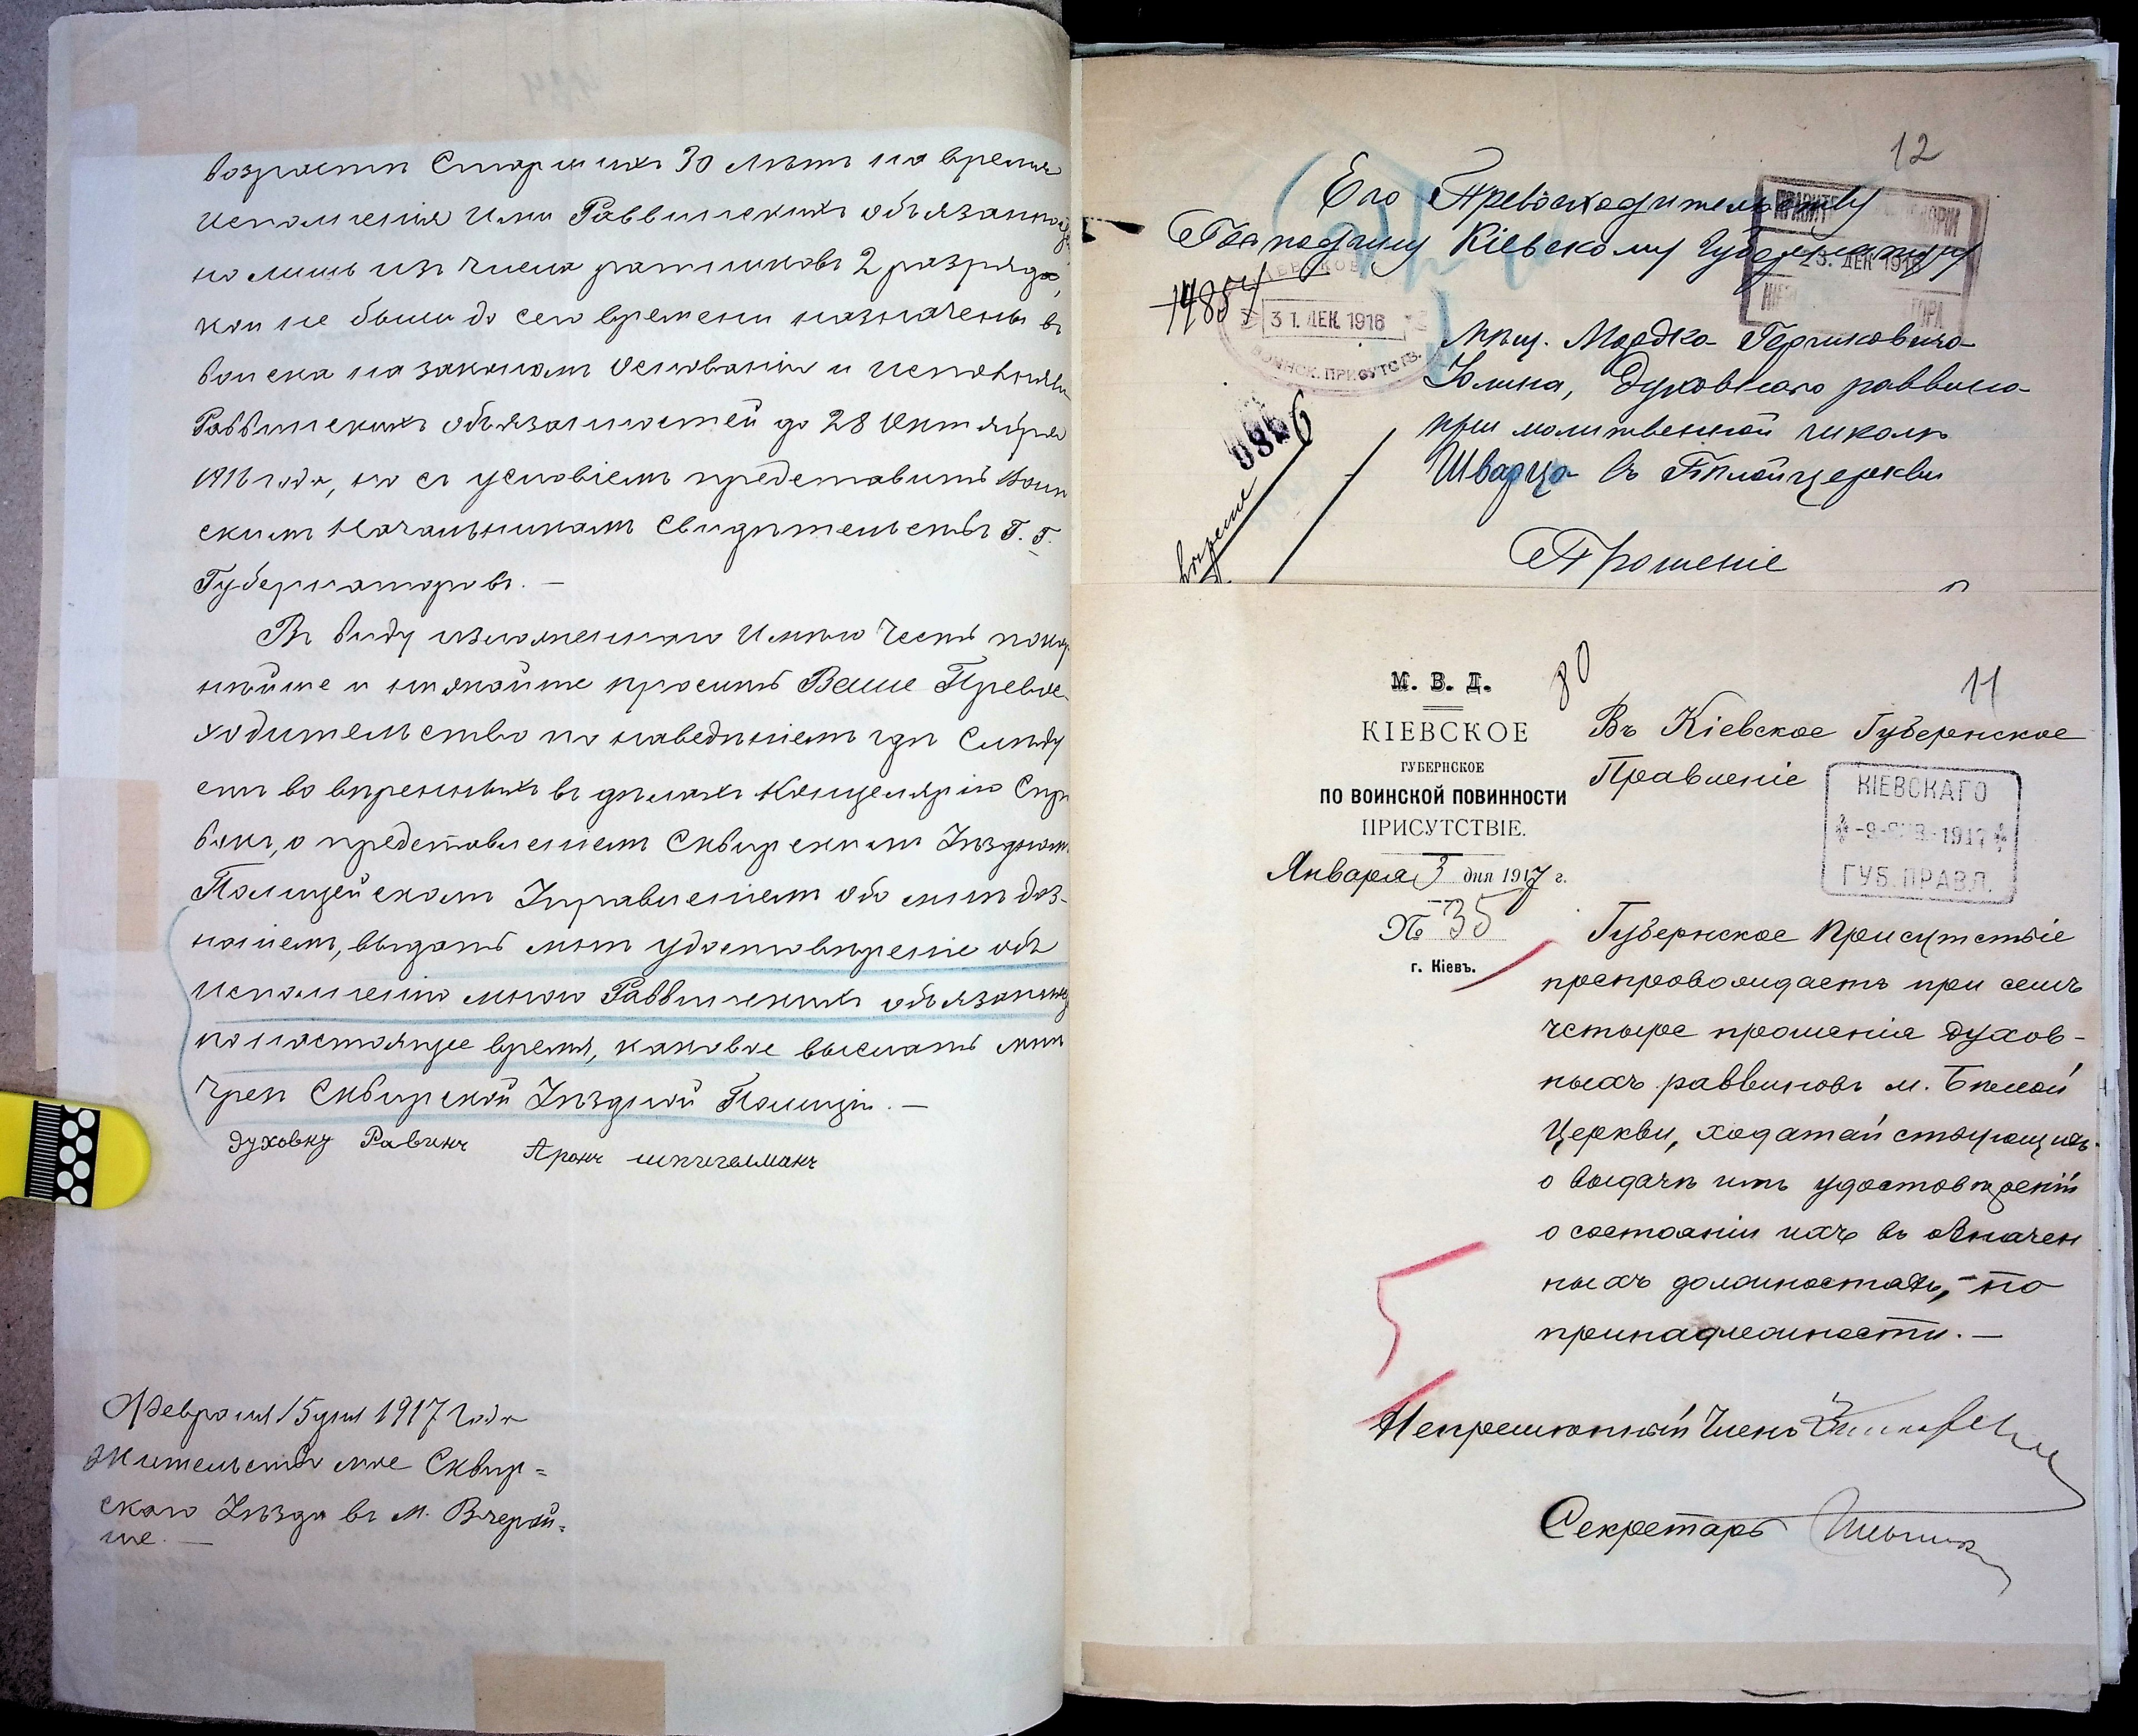 возрасти старшихъ 30 лѣтъ на время
исполненія ими Раввинскихъ обязанно
но лишь изъ числа ратниковъ 2 разряда,
кои не были до сего времени назначены въ
войска на законномъ основаніи и исполняли
Раввинскихъ обязанностей до 28 Октября
1916 года, но съ условіемъ представить Воин
скимъ Начальникамъ свидѣтельствъ Г. Г.
Губернаторовъ. —
Въ виду изложеннаго имѣю честь покор
нѣйше и нижайше просить Ваше Превос
ходительство по наведеніемъ гдѣ слѣду
етъ во ввѣренныхъ въ дѣлахъ Канцелярію Спра
вокъ, о представленіемъ Сквирскимъ Уѣзднымъ
Полицейскимъ Управленіемъ обо мнѣ доз-
наніемъ, выдать мнѣ удостовѣреніе объ
исполненію мною Раввинскихъ обязанно
по настоящее время, каковое выслать мнѣ
чрез Сквирской Уѣздной Полиціи. —
Духовну Равинъ Аронъ шпигелманъ
Февраля 15 дня 1917 года
Жительство мое Сквир=
скаго Уѣзда въ м. Вчерай=
ше. —
12
Его Превосходительству
Господину Кіевскому Губернатору
23. ДЕК 1916
14857
31. ДЕК. 1916
ВОИНСК. ПРИСУТСТВ.
Мѣщ. Мордка Гершковича
Юлина, Духовнаго раввина
при молитвенной школѣ
Шварца въ Бѣлойцеркви
Прошеніе
80
11
М. В. Д.
КІЕВСКОЕ
ГУБЕРНСКОЕ
ПО ВОИНСКОЙ ПОВИННОСТИ
ПРИСУТСТВІЕ.
Января 3 дня 1917 г.
№ 35
г. Кіевъ.
Въ Кіевское Губернское
Правленіе
КІЕВСКАГО
-9-ЯНВ.-1917
ГУБ. ПРАВЛ.
Губернское Присутствіе
препровождаетъ при семъ
четыре прошенія духов-
ныхъ раввиновъ м. Бѣлой
Церкви, ходатайствующихъ
о выдачѣ имъ удостовѣреній
о состояніи ихъ въ означен
ныхъ должностяхъ, - по
принадлежности. —
Непремѣнный Членъ
Секретарь